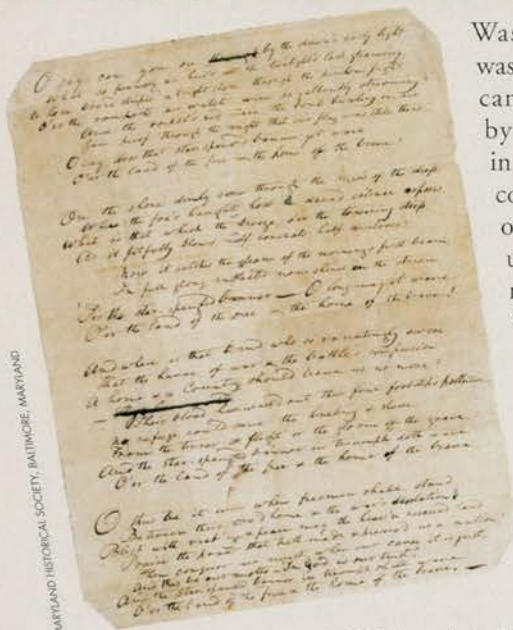 O say can you see through by the dawn's early light
What so proudly we hail'd at the twilight's last gleaming,
Whose broad stripes & bright stars through the perilous fight
O'er the ramparts we watch'd, were so gallantly streaming?
And the rocket's red glare, the bomb bursting in air,
Gave proof through the night that our flag was still there,
O say does that star spangled banner yet wave
O'er the land of the free & the home of the brave?
On the shore dimly seen through the mists of the deep,
Where the foe's haughty host in dread silence reposes,
What is that which the breeze, o'er the towering steep,
As it fitfully blows, half conceals, half discloses?
Now it catches the gleam of the morning's first beam,
In full glory reflected now shines in the stream,
'Tis the star-spangled banner — O long may it wave
O'er the land of the free & the home of the brave!
And where is that band who so vauntingly swore,
That the havoc of war & the battle's confusion
A home & a Country should leave us no more?
Their blood has wash'd out their foul footsteps pollution
No refuge could save the hireling & slave
From the terror of flight or the gloom of the grave,
And the star-spangled banner in triumph doth wave
O'er the land of the free & the home of the brave.
O thus be it ever when freemen shall stand
Between their lov'd home & the war's desolation!
Blest with vict'ry & peace may the heav'n rescued land
Praise the power that hath made & preserv'd us a nation!
Then conquer we must, when our cause it is just,
And this be our motto — In God is our trust,
And the star-spangled banner in triumph shall wave
O'er the land of the free & the home of the brave.
MARYLAND HISTORICAL SOCIETY, BALTIMORE, MARYLAND
Was
was
can
by
in